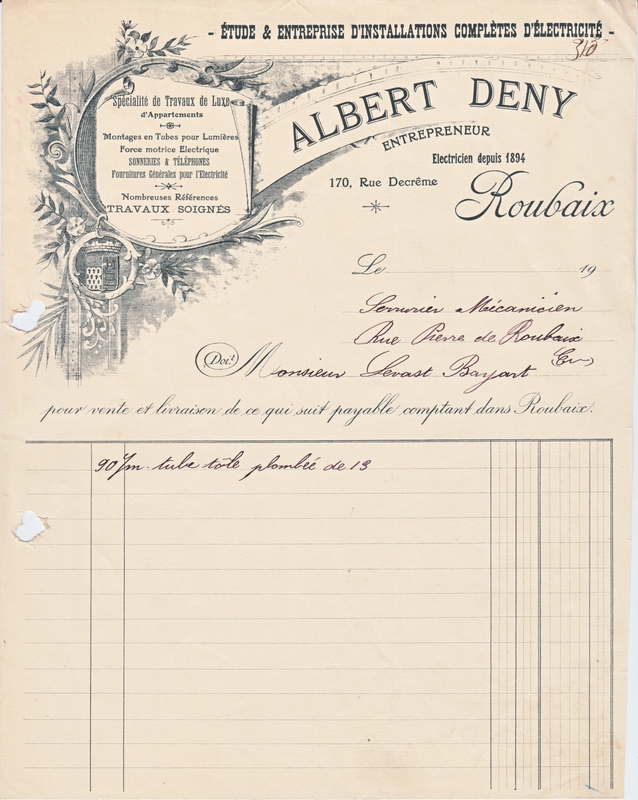 - ÉTUDE & ENTREPRISE D'INSTALLATIONS COMPLÈTES D'ÉLECTRICITÉ -
310
Spécialité de Travaux de Luxe
d'Appartements
Montages en Tubes pour Lumières
Force motrice Electrique
SONNERIES & TÉLÉPHONES
Fournitures Générales pour l'Electricité
Nombreuses Références
TRAVAUX SOIGNÉS
ALBERT DENY
ENTREPRENEUR
Electricien depuis 1894
170, Rue Decrême
Roubaix
Le 19
Serrurier Mécanicien
Rue Pierre de Roubaix
Doit Monsieur Levast Bayart
pour vente et livraison de ce qui suit payable comptant dans Roubaix.
90 /m. tube tôle plombée de 13